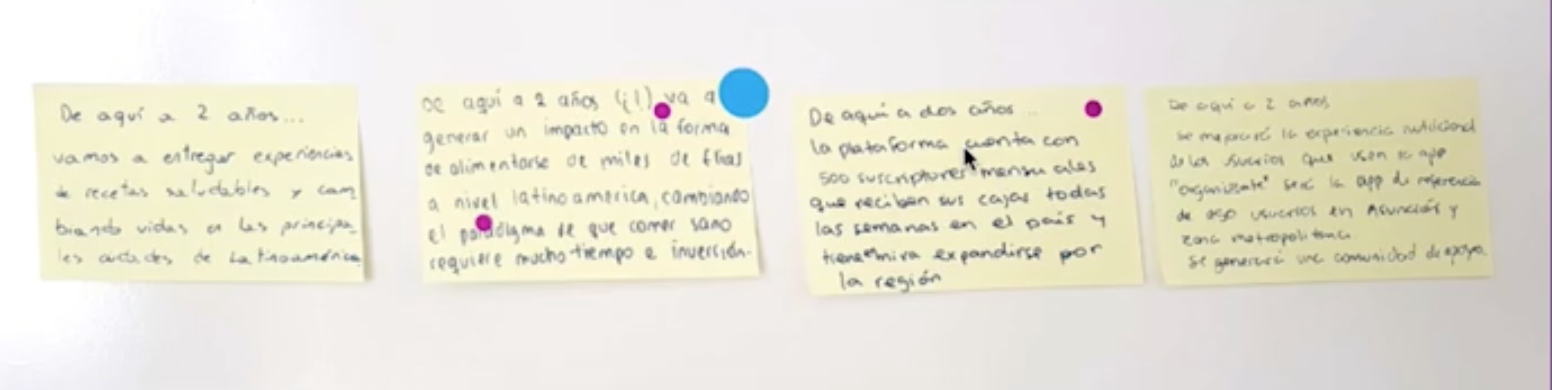 De aquí a 2 años...
vamos a entregar experiencias
de recetas saludables y cam
biando vidas en las principa
les ciudades de Latinoamérica
De aquí a 2 años (¡!) va a
generar un impacto en la forma
de alimentarse de miles de flias
a nivel latinoamerica, cambiando
el paradigma de que comer sano
requiere mucho tiempo e inversión.
De aquí a dos años...
la plataforma cuenta con
500 suscriptores mensuales
que reciben sus cajas todas
las semanas en el país y
tiene mira expandirse por
la región
De aquí a 2 años
se mejorará la experiencia nutricional
de los usuarios que usen la app
"organizate" será la app de referencia
de usuarios en Asunción y
zona metropolitana
Se generará una comunidad de apoyo